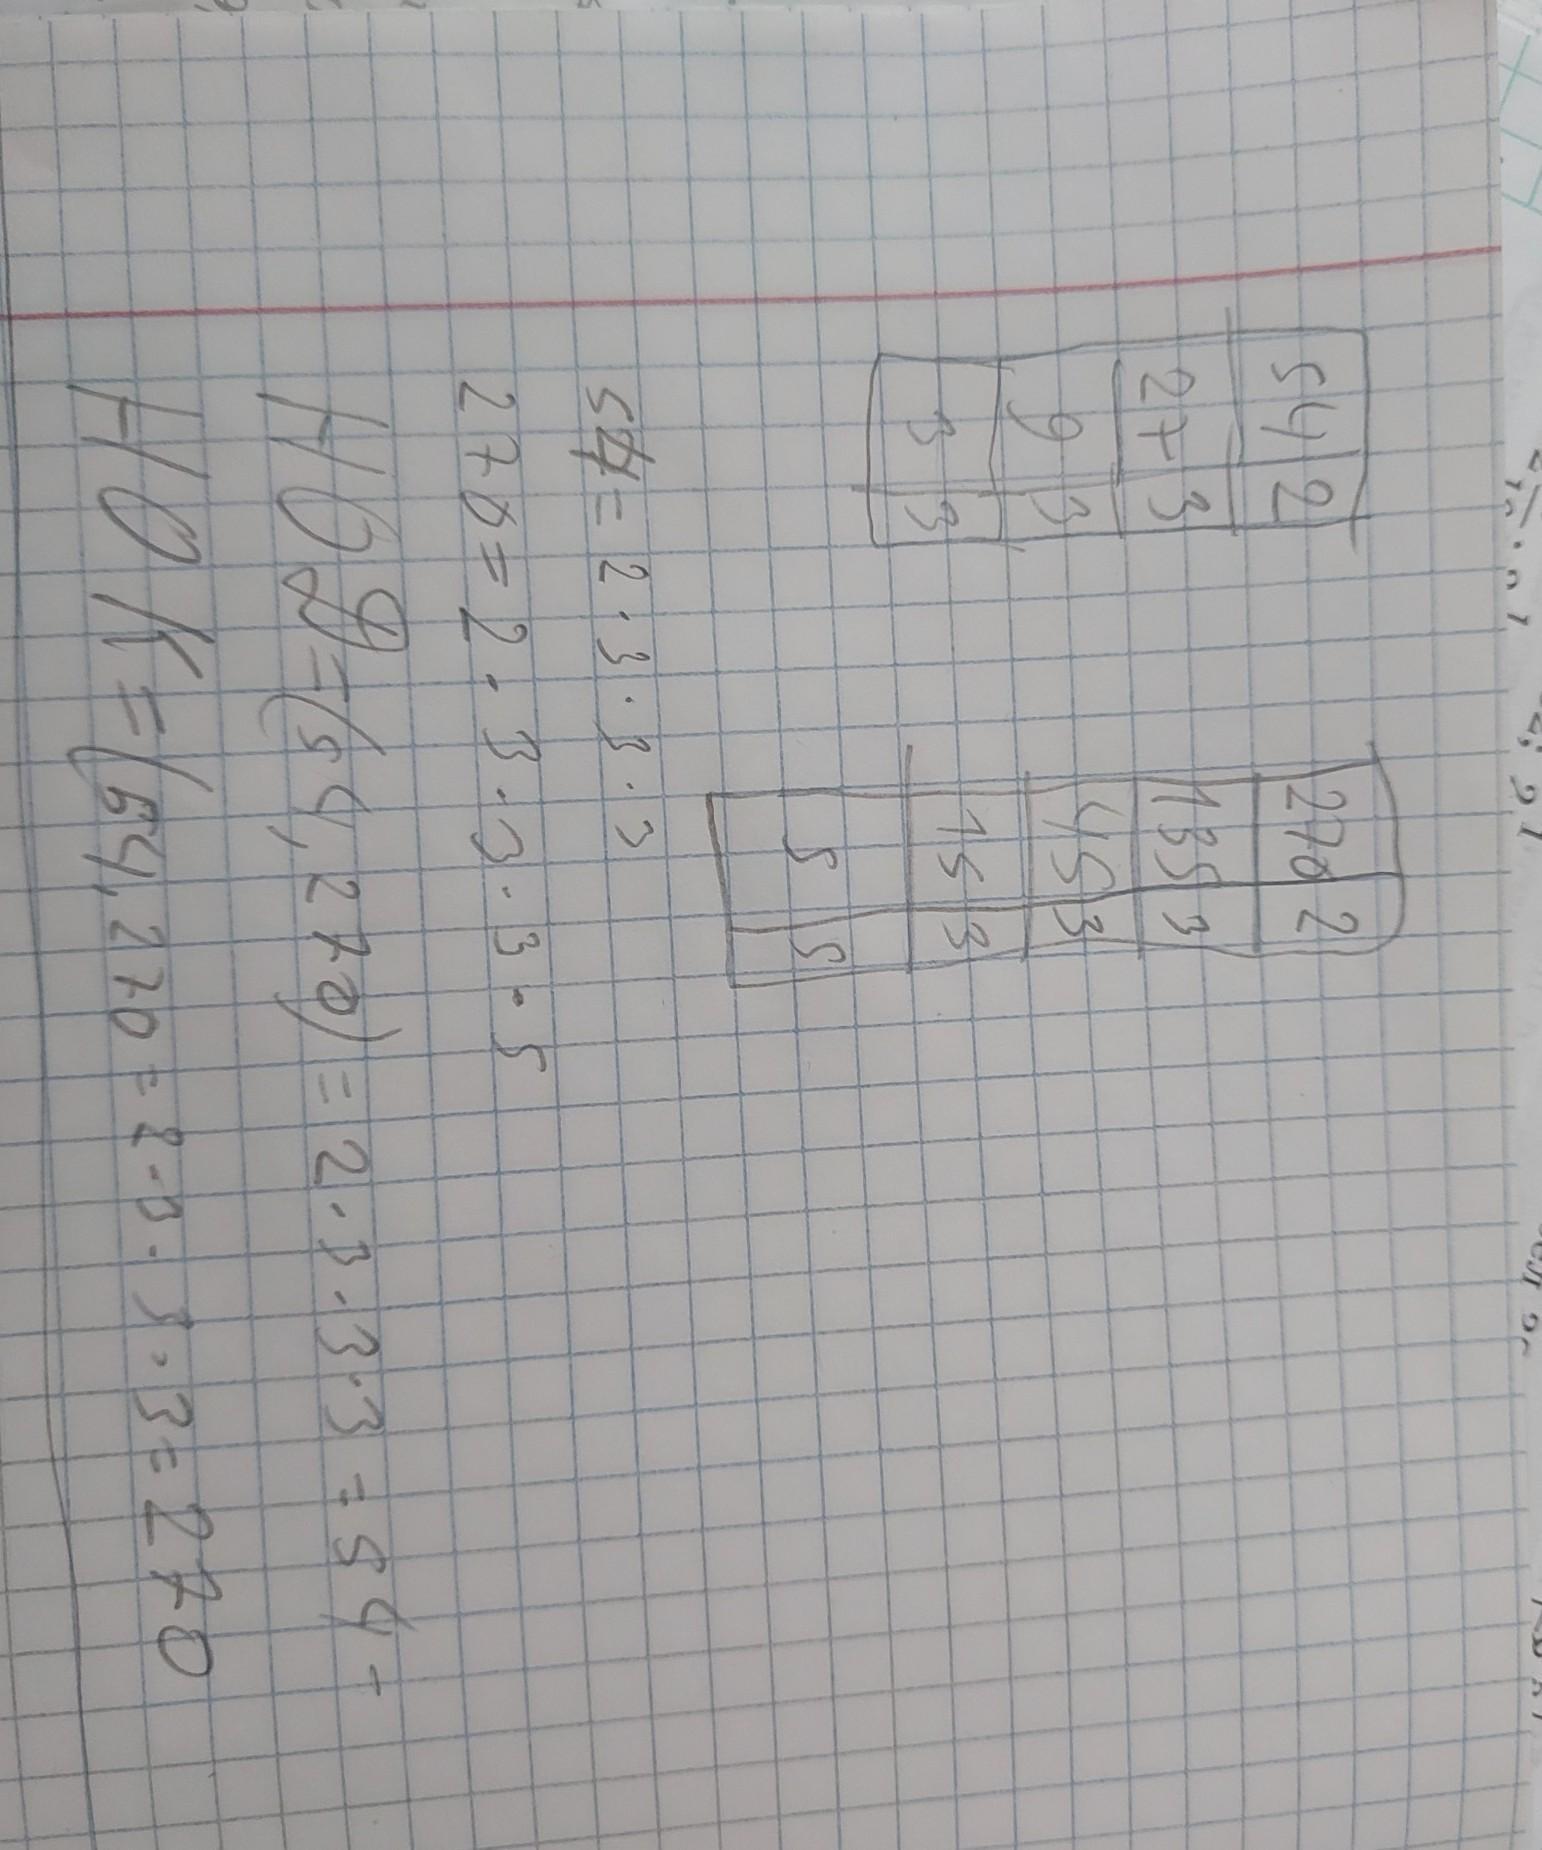 54 2
27 3
9 3
3 3
270 2
135 3
45 3
15 3
5 5
54 = 2 · 3 · 3 · 3
270 = 2 · 3 · 3 · 3 · 5
НОД = (54, 270) = 2 · 3 · 3 · 3 = 54 -
НОК = (54, 270 = 2 · · 3 = 270